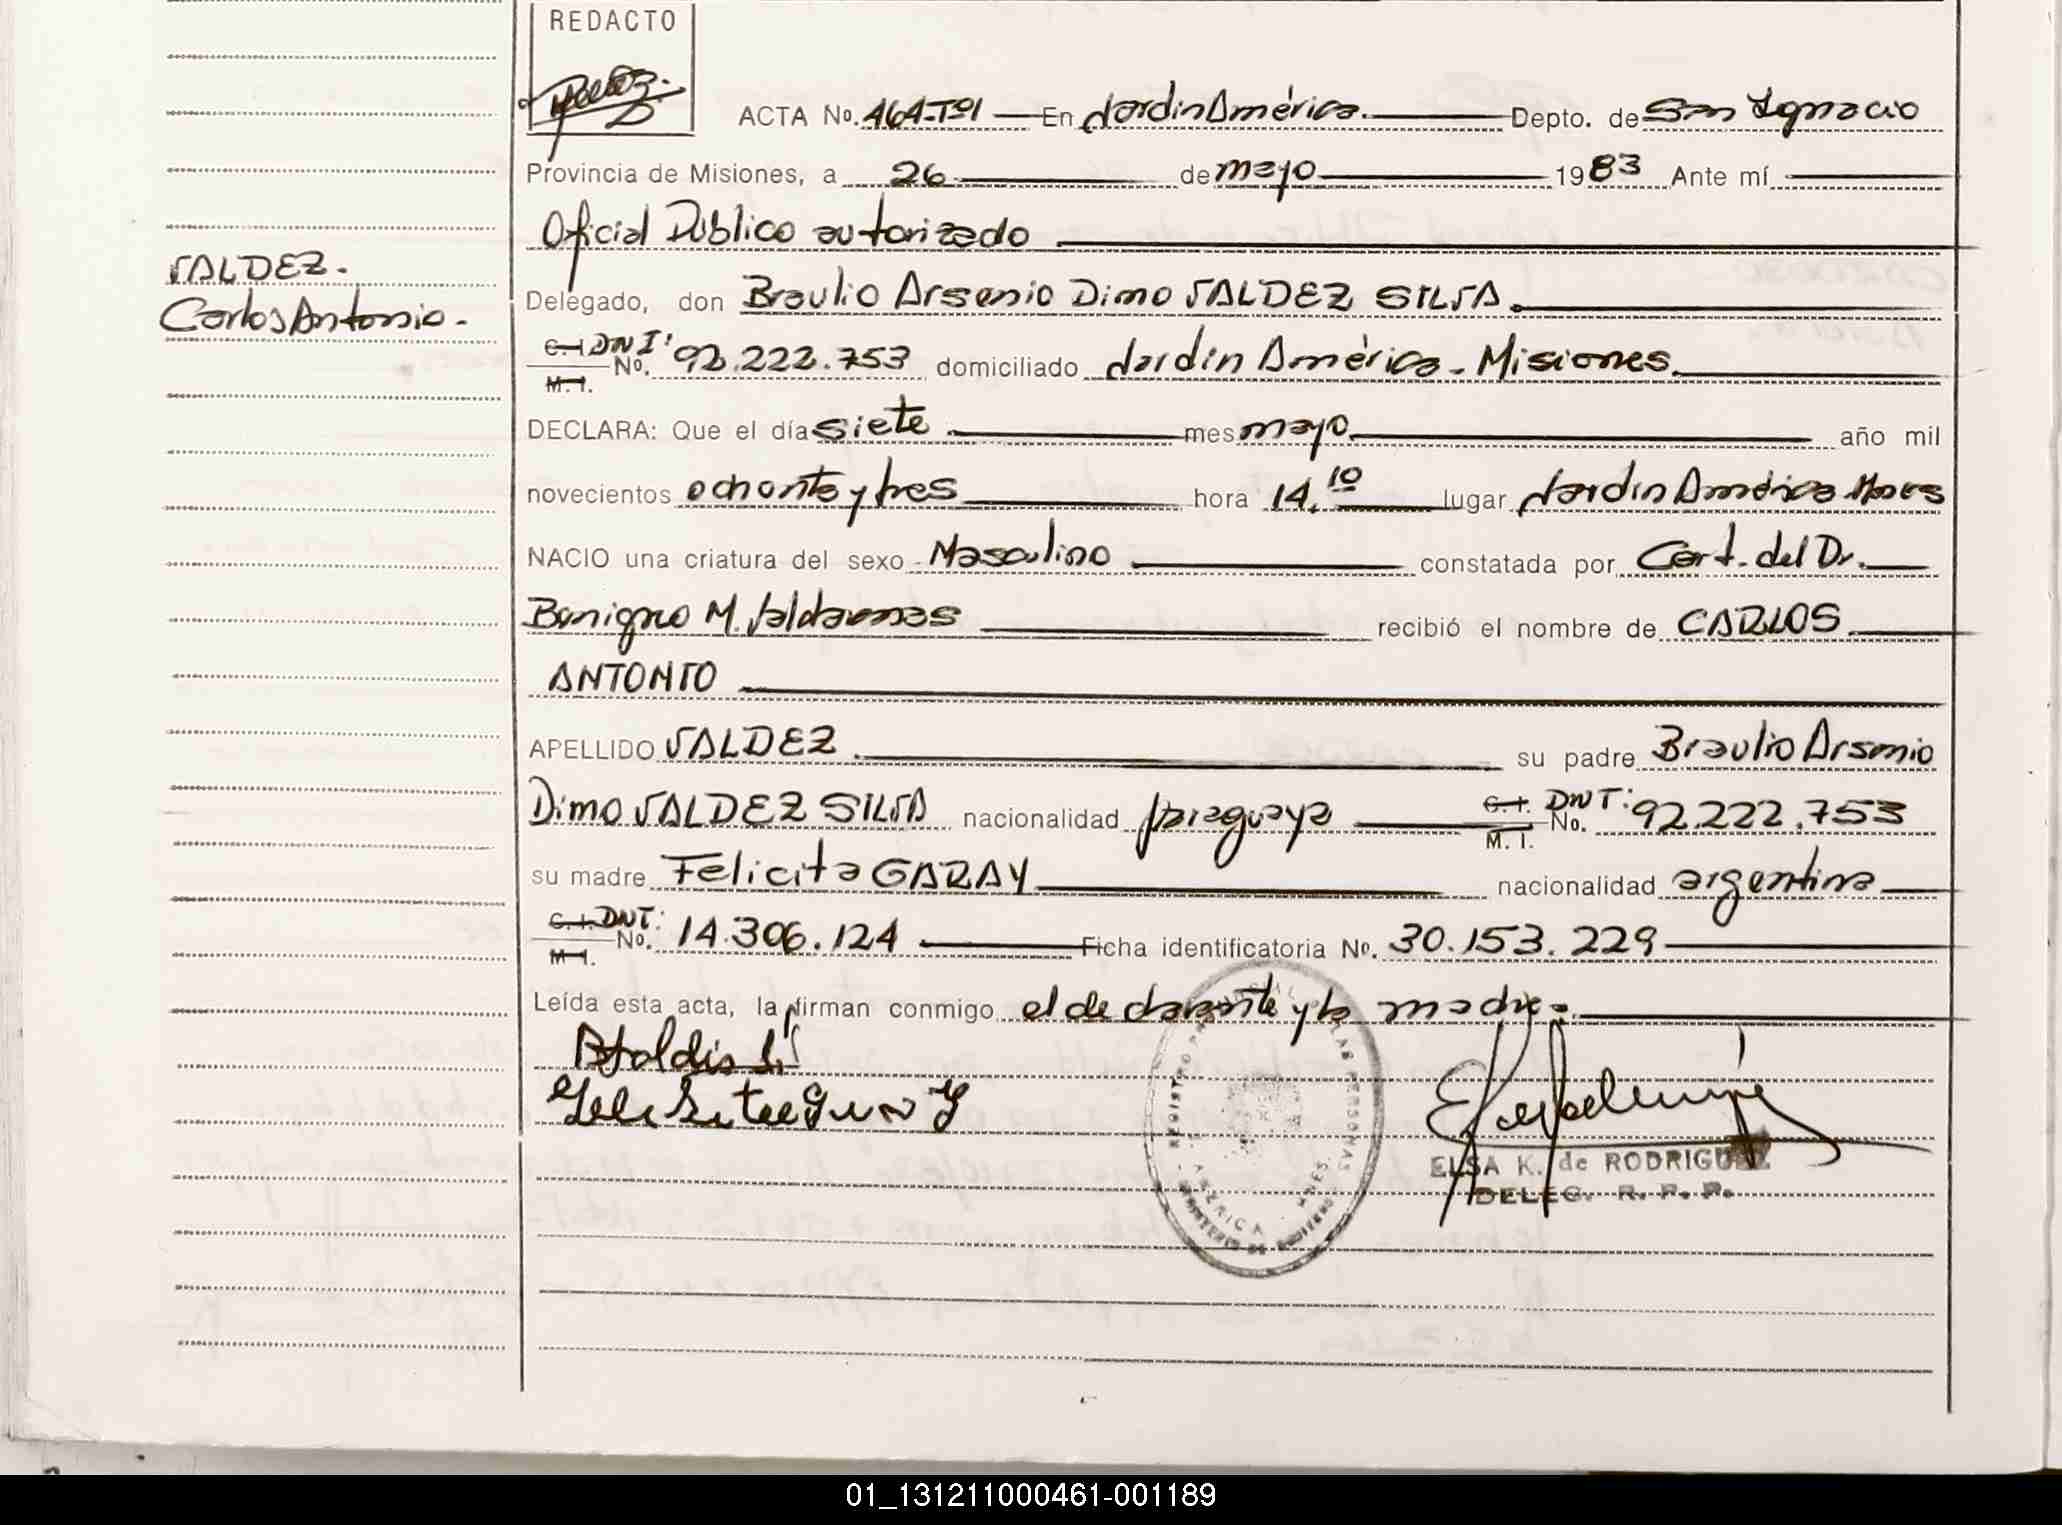 REDACTO
ACTA No. 464-Tº1 En Jardín América. Depto. de San Ignacio
Provincia de Misiones, a 26 de mayo 1983 Ante mí
Oficial Público autorizado
VALDEZ.
Carlos Antonio.
Delegado, don Braulio Arsenio Dimo VALDEZ SILVA.
C. I. DNI: No. 92.222.753 domiciliado Jardín América - Misiones.
M. I.
DECLARA: Que el día siete mes mayo año mil
novecientos ochenta y tres hora 14.10 lugar Jardín América Mnes
NACIO una criatura del sexo Masculino constatada por Cert. del Dr.
Benigno M. recibió el nombre de CARLOS
ANTONIO
APELLIDO VALDEZ. su padre Braulio Arsenio
Dimo VALDEZ SILVA nacionalidad paraguaya C. I. DNI: No. 92.222.753
M. I.
su madre Felicita GARAY nacionalidad argentina
C. I. DNI: No. 14.306.124 Ficha identificatoria No. 30.153.229
M. I.
Leída esta acta, la firman conmigo el declarante y la madre.
REGISTRO PROVINCIAL DE LAS PERSONAS
AMERICA - MNES.
MINISTERIO DE GOBIERNO
ELSA K. de RODRIGUEZ
DELEG. R. P. P.
01_131211000461-001189